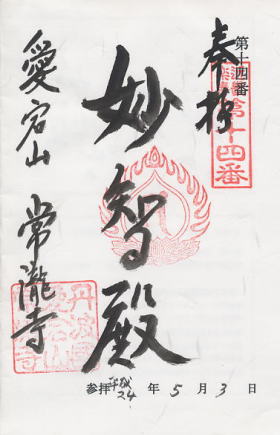 第十四番
奉拝
第十四番
妙智殿
愛宕山 常瀧寺
参拝 平成24年5月3日